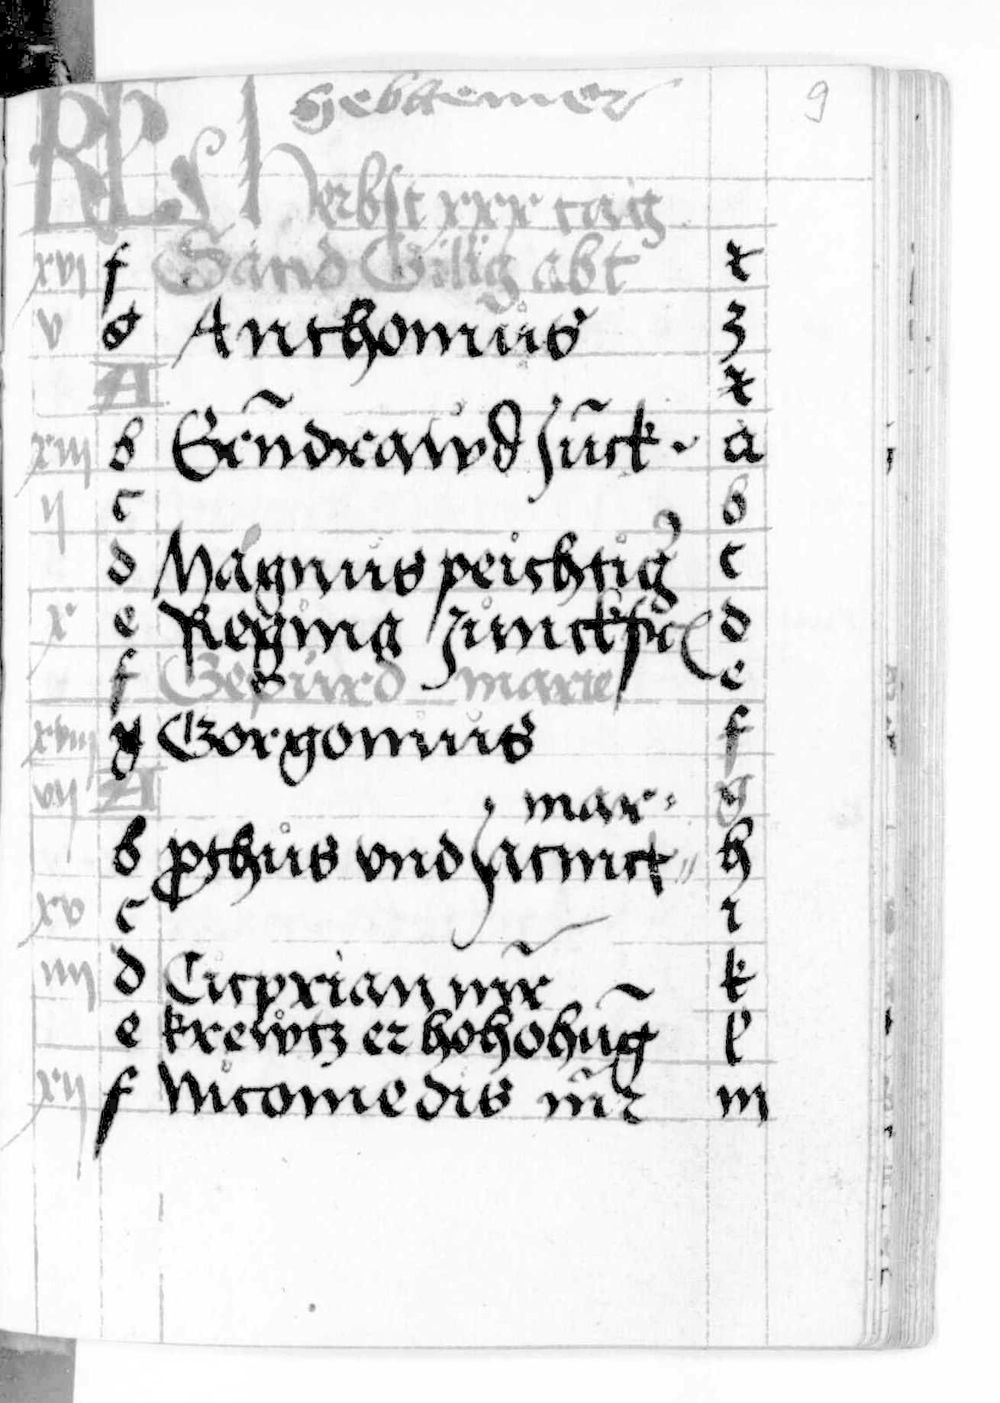 Sebttemer 9
KL Herbst xxx taig
xvj f Sand Gilig abt x
v g Anthonius z
A x
xiij b Sẽndrawd Jũck. a
ij c b
d Magnus peichtig c
x e Regina Junckfr d
f Gepurd marie e
xviij g Gorgonius f
vij A g
mar.
b prthus vnd Jacinct h
xv c i
iiij d Ciprian mr̃ k
e krewtz er hohohũg l
xij f Nicomedis mr̃ m